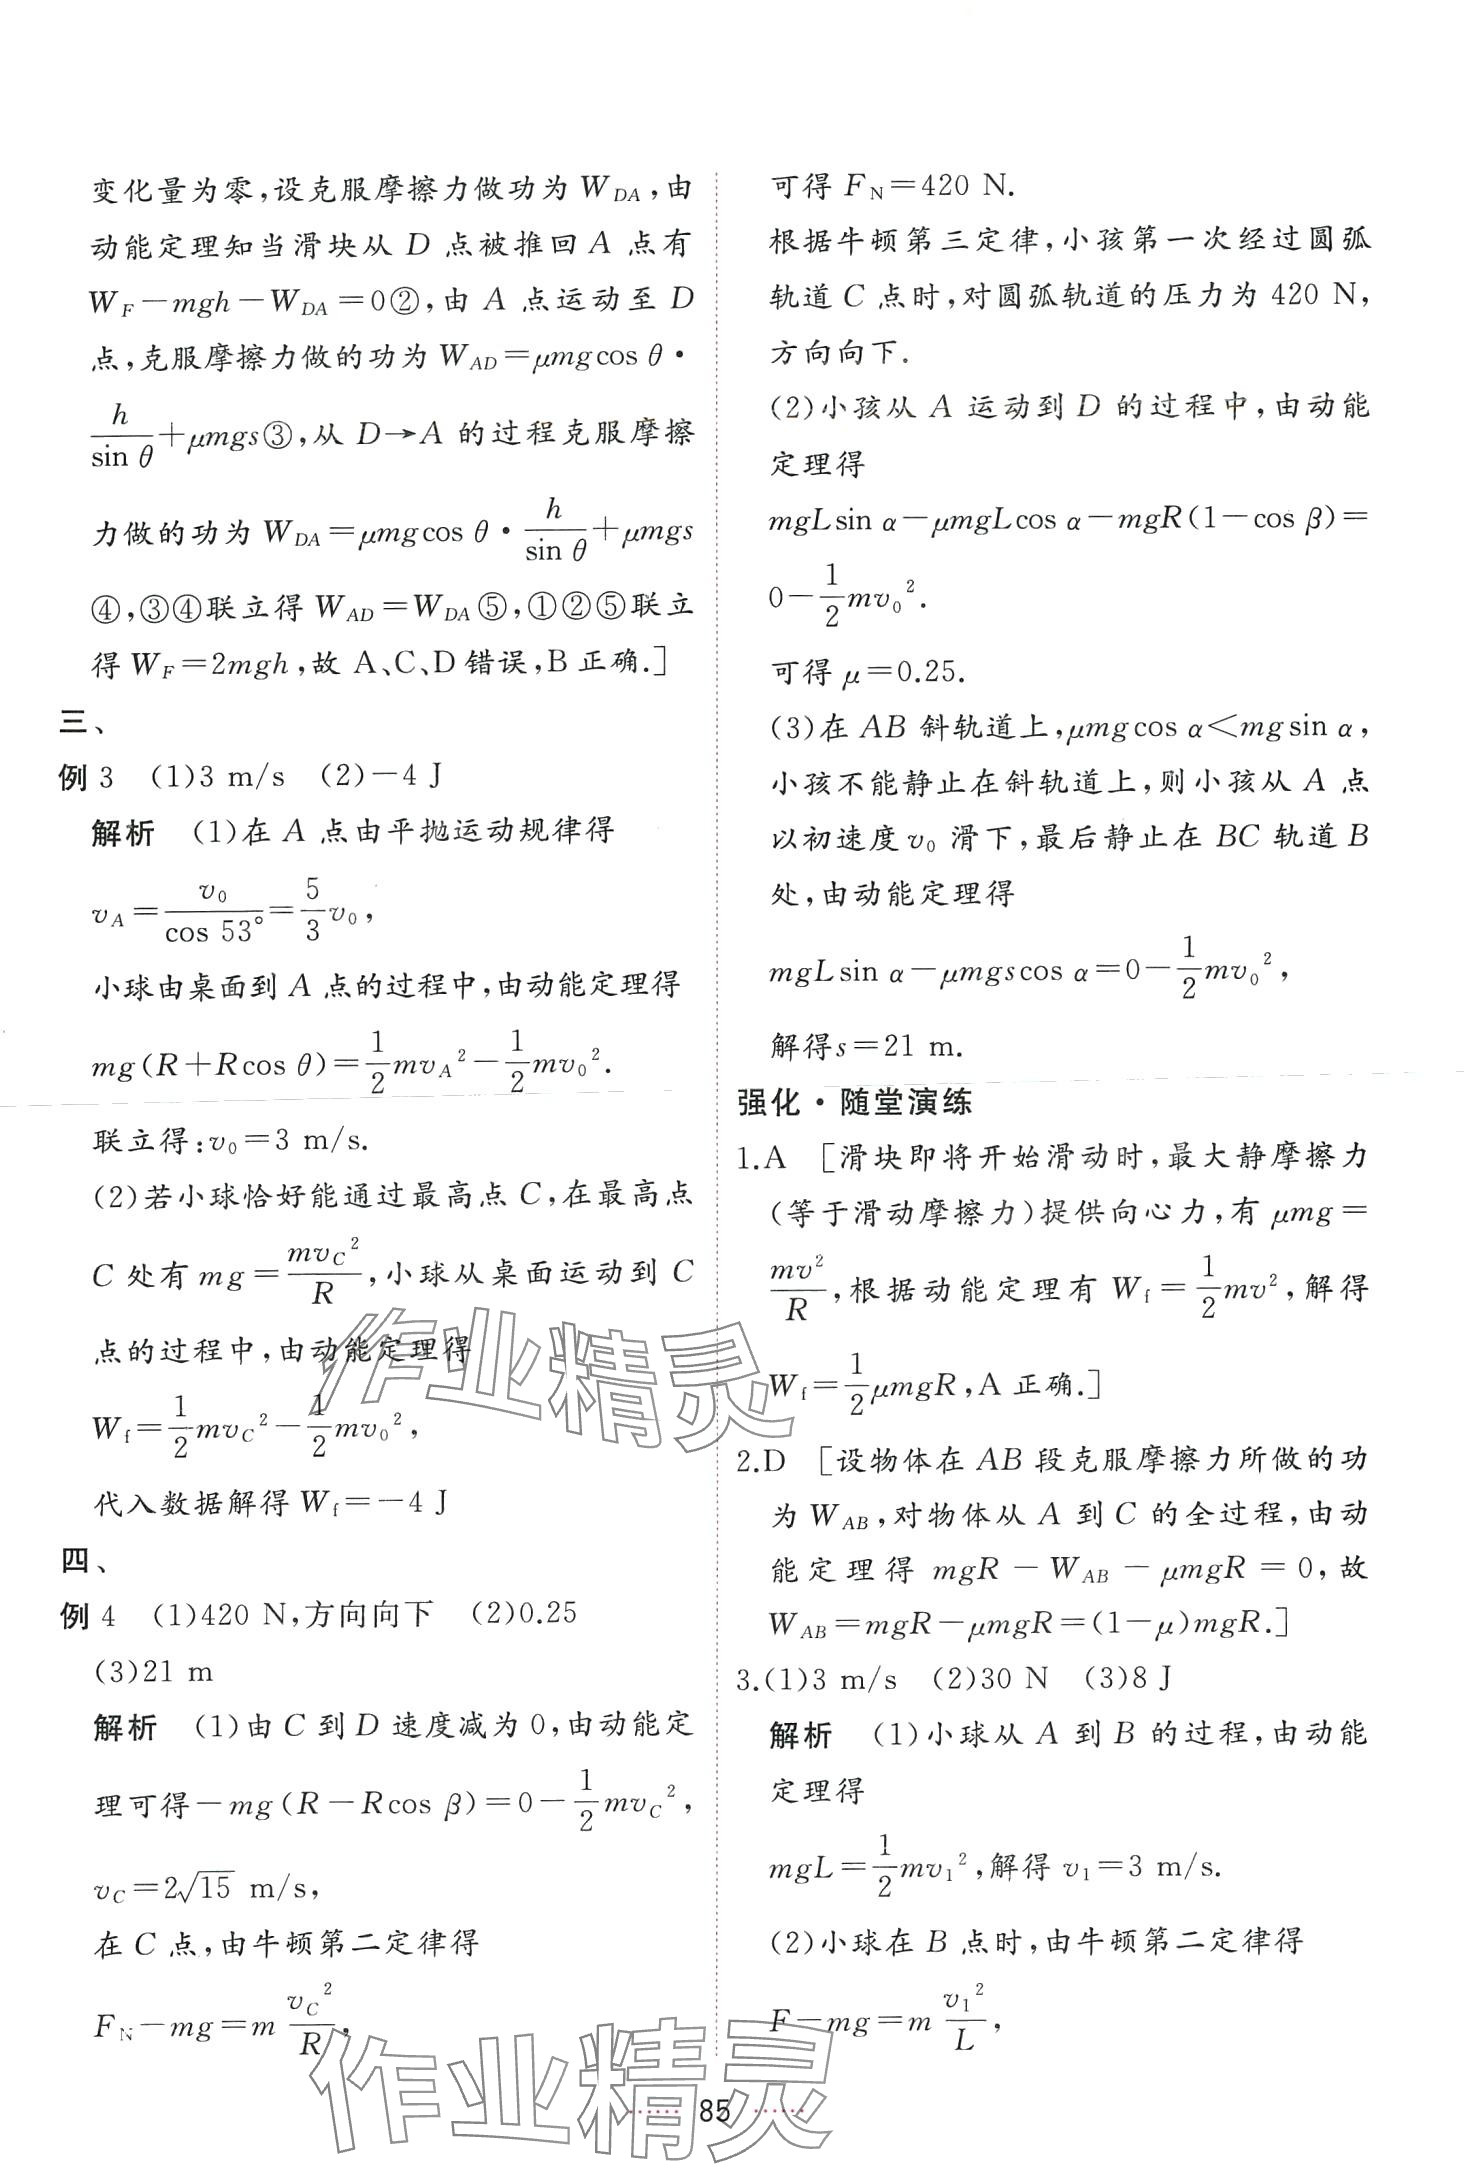 变化量为零,设克服摩擦力做功为 W_{DA},由
动能定理知当滑块从 D 点被推回 A 点有
W_F-mgh-W_{DA}=0②,由 A 点运动至 D
点,克服摩擦力做的功为 W_{AD}=μmgcos θ·
\frac{h}{sin θ}+μmgs③,从 D→A 的过程克服摩擦
力做的功为 W_{DA}=μmgcos θ·\frac{h}{sin θ}+μmgs
④,③④联立得 W_{AD}=W_{DA}⑤,①②⑤联立
得 W_F=2mgh,故 A、C、D 错误,B 正确.]
三、
例 3 (1)3 m/s (2)-4 J
解析 (1)在 A 点由平抛运动规律得
v_A=\frac{v_0}{cos 53°}=\frac{5}{3}v_0,
小球由桌面到 A 点的过程中,由动能定理得
mg(R+Rcos θ)=\frac{1}{2}mv_A^2-\frac{1}{2}mv_0^2.
联立得:v_0=3 m/s.
(2)若小球恰好能通过最高点 C,在最高点
C 处有 mg=\frac{mv_C^2}{R},小球从桌面运动到 C
点的过程中,由动能定理得
W_f=\frac{1}{2}mv_C^2-\frac{1}{2}mv_0^2,
代入数据解得 W_f=-4 J
四、
例 4 (1)420 N,方向向下 (2)0.25
(3)21 m
解析 (1)由 C 到 D 速度减为 0,由动能定
理可得-mg(R-Rcos β)=0-\frac{1}{2}mv_C^2,
v_C=2\sqrt{15} m/s,
在 C 点,由牛顿第二定律得
F_N-mg=m\frac{v_C^2}{R},
可得 F_N=420 N.
根据牛顿第三定律,小孩第一次经过圆弧
轨道 C 点时,对圆弧轨道的压力为 420 N,
方向向下.
(2)小孩从 A 运动到 D 的过程中,由动能
定理得
mgLsin α-μmgLcos α-mgR(1-cos β)=
0-\frac{1}{2}mv_0^2.
可得 μ=0.25.
(3)在 AB 斜轨道上,μmgcos α<mgsin α,
小孩不能静止在斜轨道上,则小孩从 A 点
以初速度 v_0 滑下,最后静止在 BC 轨道 B
处,由动能定理得
mgLsin α-μmgscos α=0-\frac{1}{2}mv_0^2,
解得s=21 m.
强化·随堂演练
1.A [滑块即将开始滑动时,最大静摩擦力
(等于滑动摩擦力)提供向心力,有 μmg=
\frac{mv^2}{R},根据动能定理有 W_f=\frac{1}{2}mv^2,解得
W_f=\frac{1}{2}μmgR,A 正确.]
2.D [设物体在 AB 段克服摩擦力所做的功
为 W_{AB},对物体从 A 到 C 的全过程,由动
能定理得 mgR-W_{AB}-μmgR=0,故
W_{AB}=mgR-μmgR=(1-μ)mgR.]
3.(1)3 m/s (2)30 N (3)8 J
解析 (1)小球从 A 到 B 的过程,由动能
定理得
mgL=\frac{1}{2}mv_1^2,解得 v_1=3 m/s.
(2)小球在 B 点时,由牛顿第二定律得
F-mg=m\frac{v_1^2}{L},
作业精灵
作业精灵
85